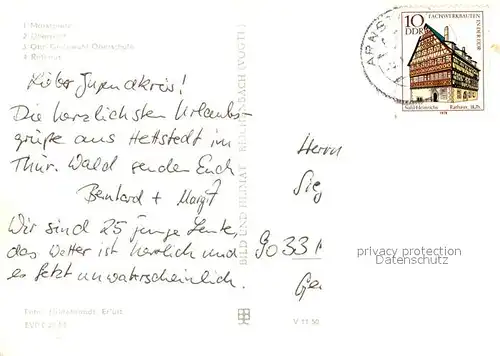 1 Marktplatz
2 Übersicht
4 Rathaus
Lieber Jugendkreis!
Die herzlichsten Urlaubs-
grüße aus Hettstedt im
Thür. Wald senden Euch
Bernhard + Margit
Wir sind 25 junge Leute,
das Wetter ist herrlich und
es fetzt unwahrscheinlich.
BILD UND HEIMAT REICHENBACH (VOGTL)
V 11 50
ARNST
10
DDR
FACHWERKBAUTEN
IN DER DDR
Suhl-Heinrichs Rathaus 16. Jh.
1978
Herrn
Sieg
9033
privacy protection
Datenschutz